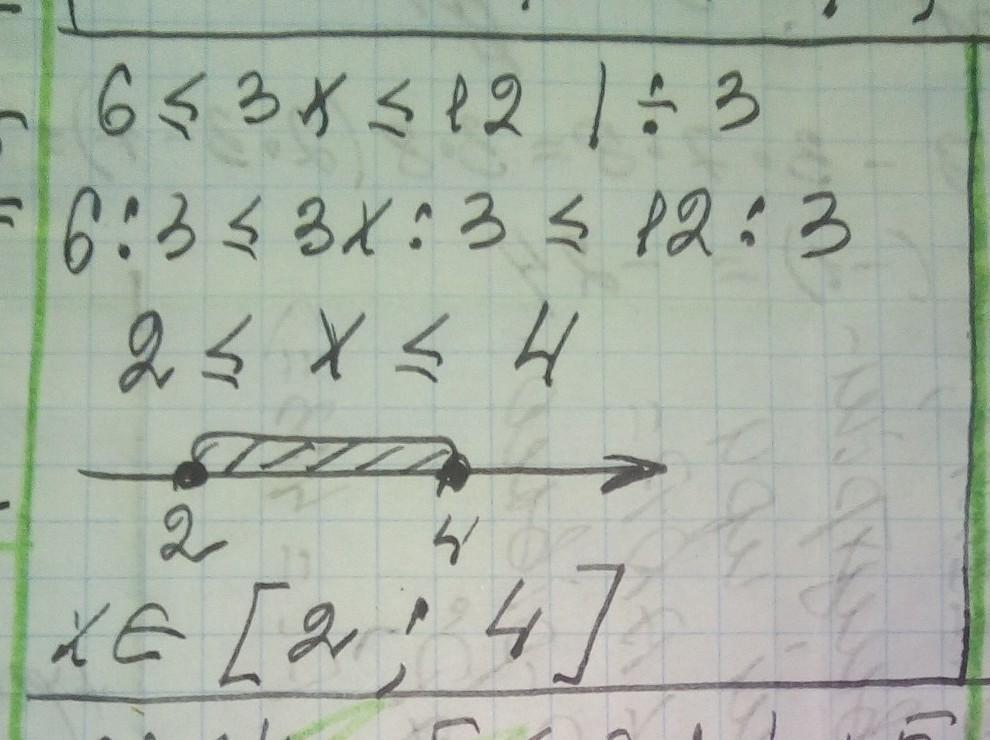 6 ≤ 3x ≤ 12 | ÷ 3
6 : 3 ≤ 3x : 3 ≤ 12 : 3
2 ≤ x ≤ 4
2 4
x ∈ [2 ; 4]